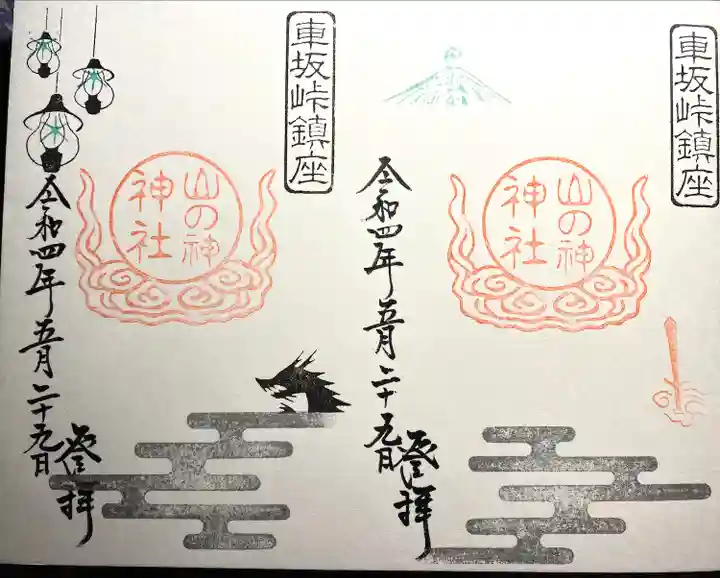 車坂峠鎮座
山の神
神社
令和四年五月二十九日
登拝
車坂峠鎮座
山の神
神社
令和四年五月二十九日
登拝